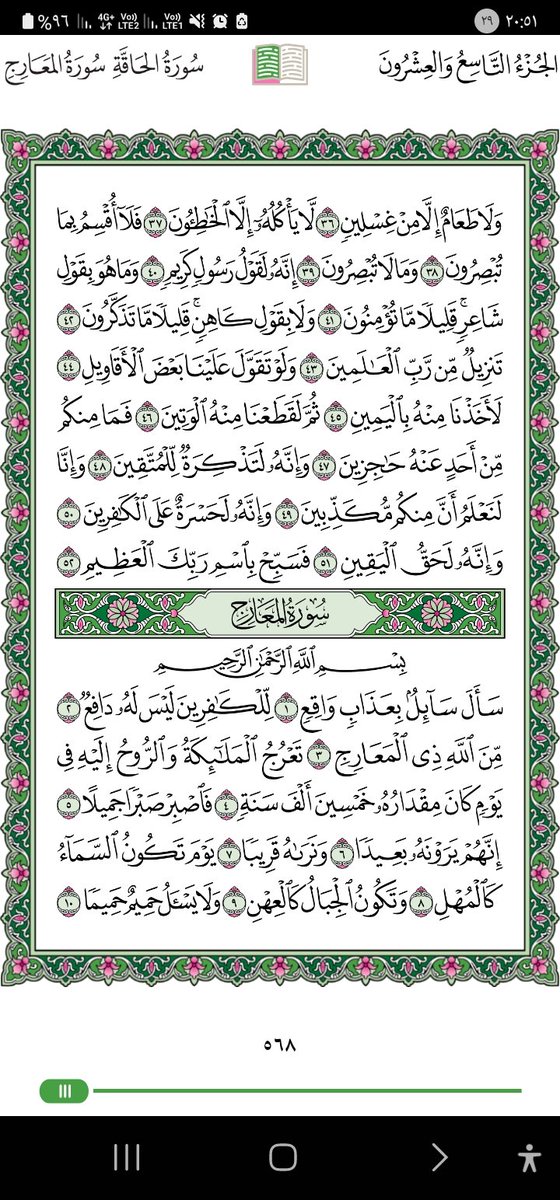 ٢٠:٥١ ٢٩ VoLTE1 4G+ VoLTE2 ٩٦%
الجُزْءُ التَّاسِعُ وَالعِشْرُونَ سُورَةُ الحَاقَّةِ سُورَةُ المَعَارِجِ
وَلَا طَعَامٌ إِلَّا مِنْ غِسْلِينٍ ٣٦ لَّا يَأْكُلُهُۥٓ إِلَّا ٱلْخَٰطِـُٔونَ ٣٧ فَلَآ أُقْسِمُ بِمَا
تُبْصِرُونَ ٣٨ وَمَا لَا تُبْصِرُونَ ٣٩ إِنَّهُۥ لَقَوْلُ رَسُولٍ كَرِيمٍ ٤٠ وَمَا هُوَ بِقَوْلِ
شَاعِرٍۚ قَلِيلًا مَّا تُؤْمِنُونَ ٤١ وَلَا بِقَوْلِ كَاهِنٍۚ قَلِيلًا مَّا تَذَكَّرُونَ ٤٢
تَنزِيلٌ مِّن رَّبِّ ٱلْعَٰلَمِينَ ٤٣ وَلَوْ تَقَوَّلَ عَلَيْنَا بَعْضَ ٱلْأَقَاوِيلِ ٤٤
لَأَخَذْنَا مِنْهُ بِٱلْيَمِينِ ٤٥ ثُمَّ لَقَطَعْنَا مِنْهُ ٱلْوَتِينَ ٤٦ فَمَا مِنكُم
مِّنْ أَحَدٍ عَنْهُ حَٰجِزِينَ ٤٧ وَإِنَّهُۥ لَتَذْكِرَةٌ لِّلْمُتَّقِينَ ٤٨ وَإِنَّا
لَنَعْلَمُ أَنَّ مِنكُم مُّكَذِّبِينَ ٤٩ وَإِنَّهُۥ لَحَسْرَةٌ عَلَى ٱلْكَٰفِرِينَ ٥٠
وَإِنَّهُۥ لَحَقُّ ٱلْيَقِينِ ٥١ فَسَبِّحْ بِٱسْمِ رَبِّكَ ٱلْعَظِيمِ ٥٢
سُورَةُ المَعَارِجِ
بِسْمِ ٱللَّهِ ٱلرَّحْمَٰنِ ٱلرَّحِيمِ
سَأَلَ سَآئِلٌۢ بِعَذَابٍ وَاقِعٍ ١ لِّلْكَٰفِرِينَ لَيْسَ لَهُۥ دَافِعٌ ٢
مِّنَ ٱللَّهِ ذِى ٱلْمَعَارِجِ ٣ تَعْرُجُ ٱلْمَلَٰٓئِكَةُ وَٱلرُّوحُ إِلَيْهِ فِى
يَوْمٍ كَانَ مِقْدَارُهُۥ خَمْسِينَ أَلْفَ سَنَةٍ ٤ فَٱصْبِرْ صَبْرًا جَمِيلًا ٥
إِنَّهُمْ يَرَوْنَهُۥ بَعِيدًا ٦ وَنَرَىٰهُ قَرِيبًا ٧ يَوْمَ تَكُونُ ٱلسَّمَآءُ
كَٱلْمُهْلِ ٨ وَتَكُونُ ٱلْجِبَالُ كَٱلْعِهْنِ ٩ وَلَا يَسْـَٔلُ حَمِيمٌ حَمِيمًا ١٠
٥٦٨